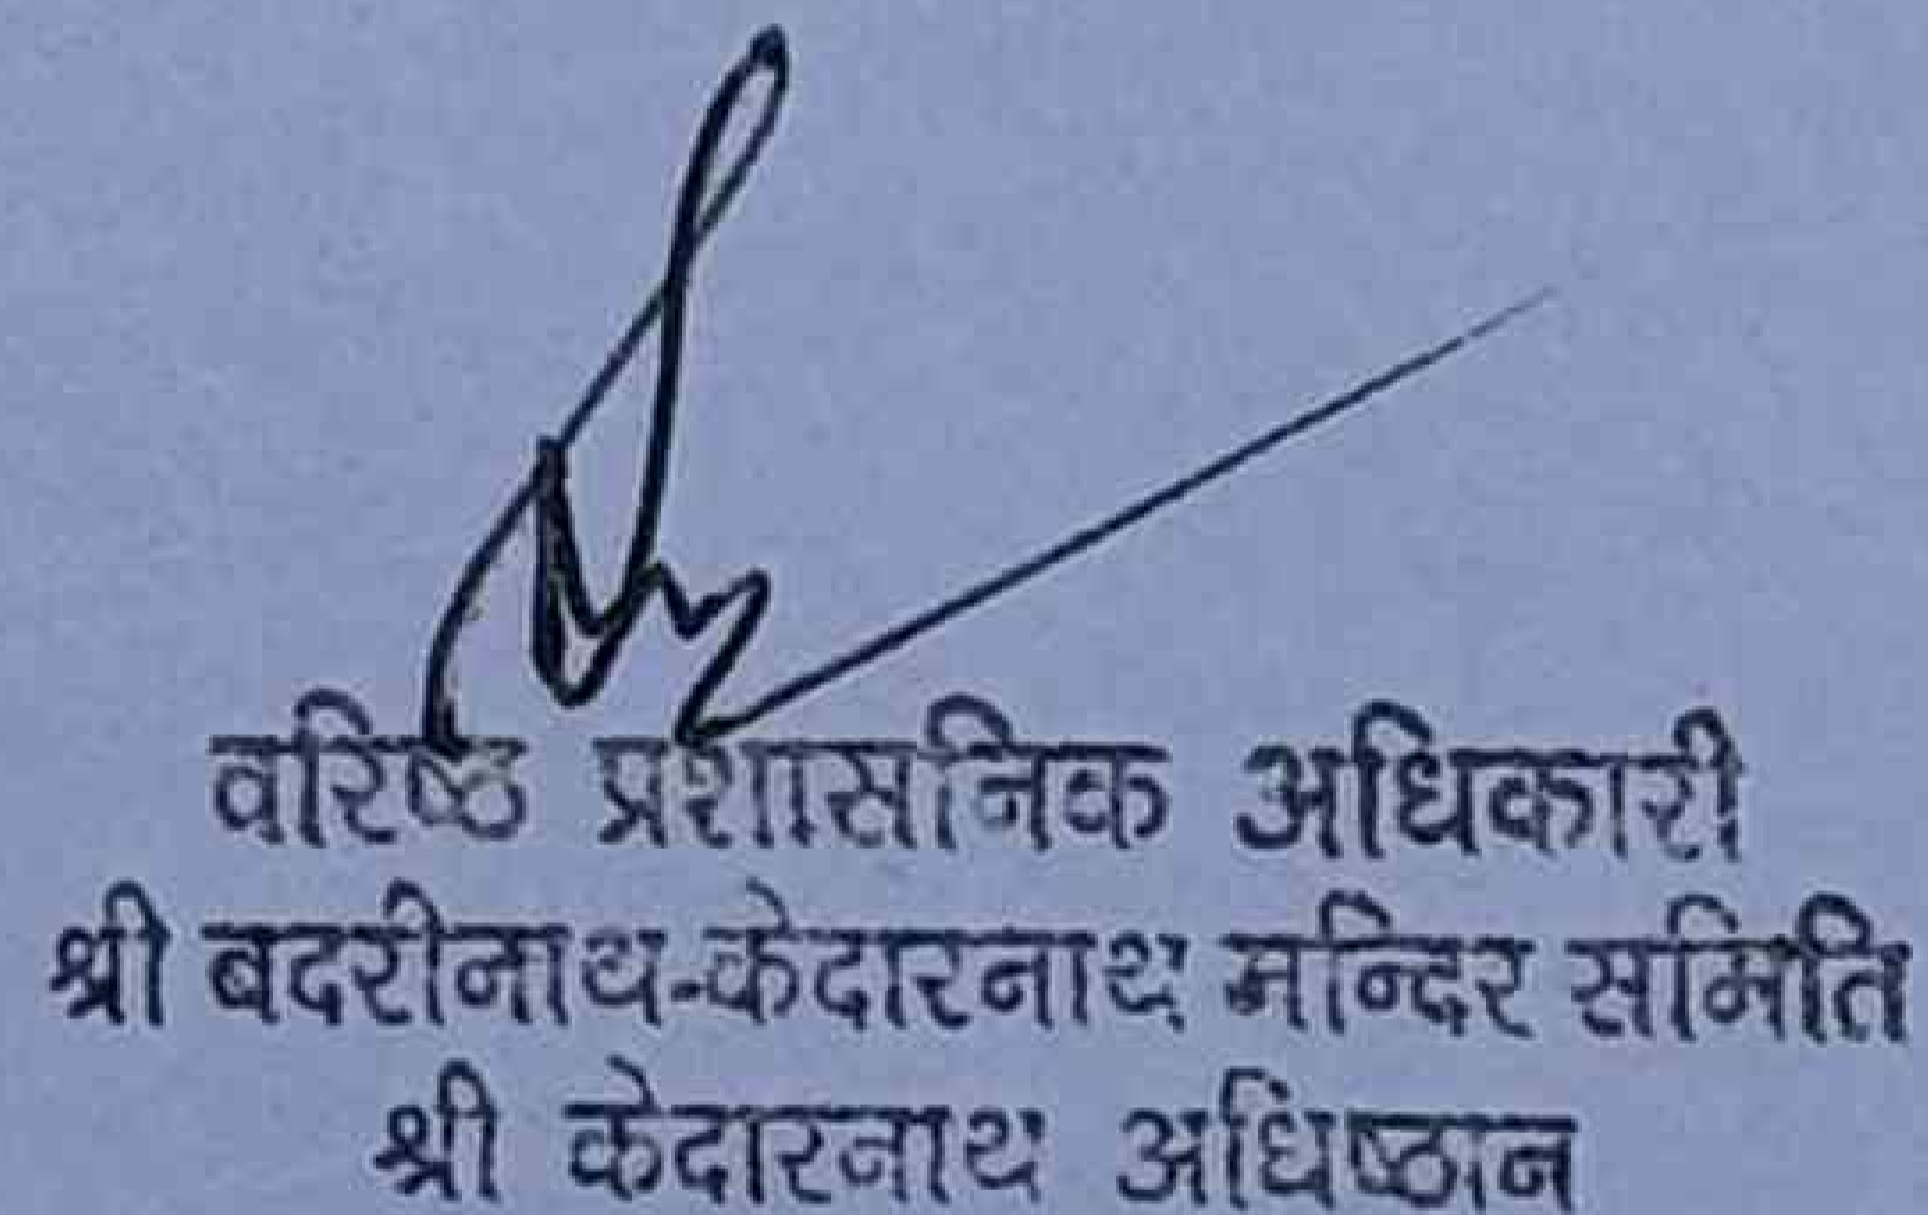 वरिष्ठ प्रशासनिक अधिकारी
श्री बदरीनाथ-केदारनाथ मन्दिर समिति
श्री केदारनाथ अधिष्ठान